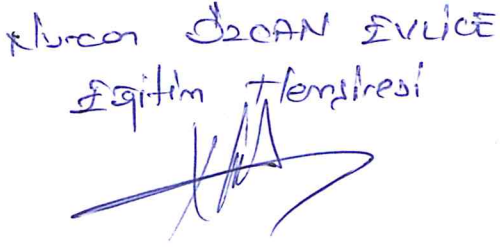 Nurcan ÖZCAN EVLİCE
Eğitim Hemşiresi